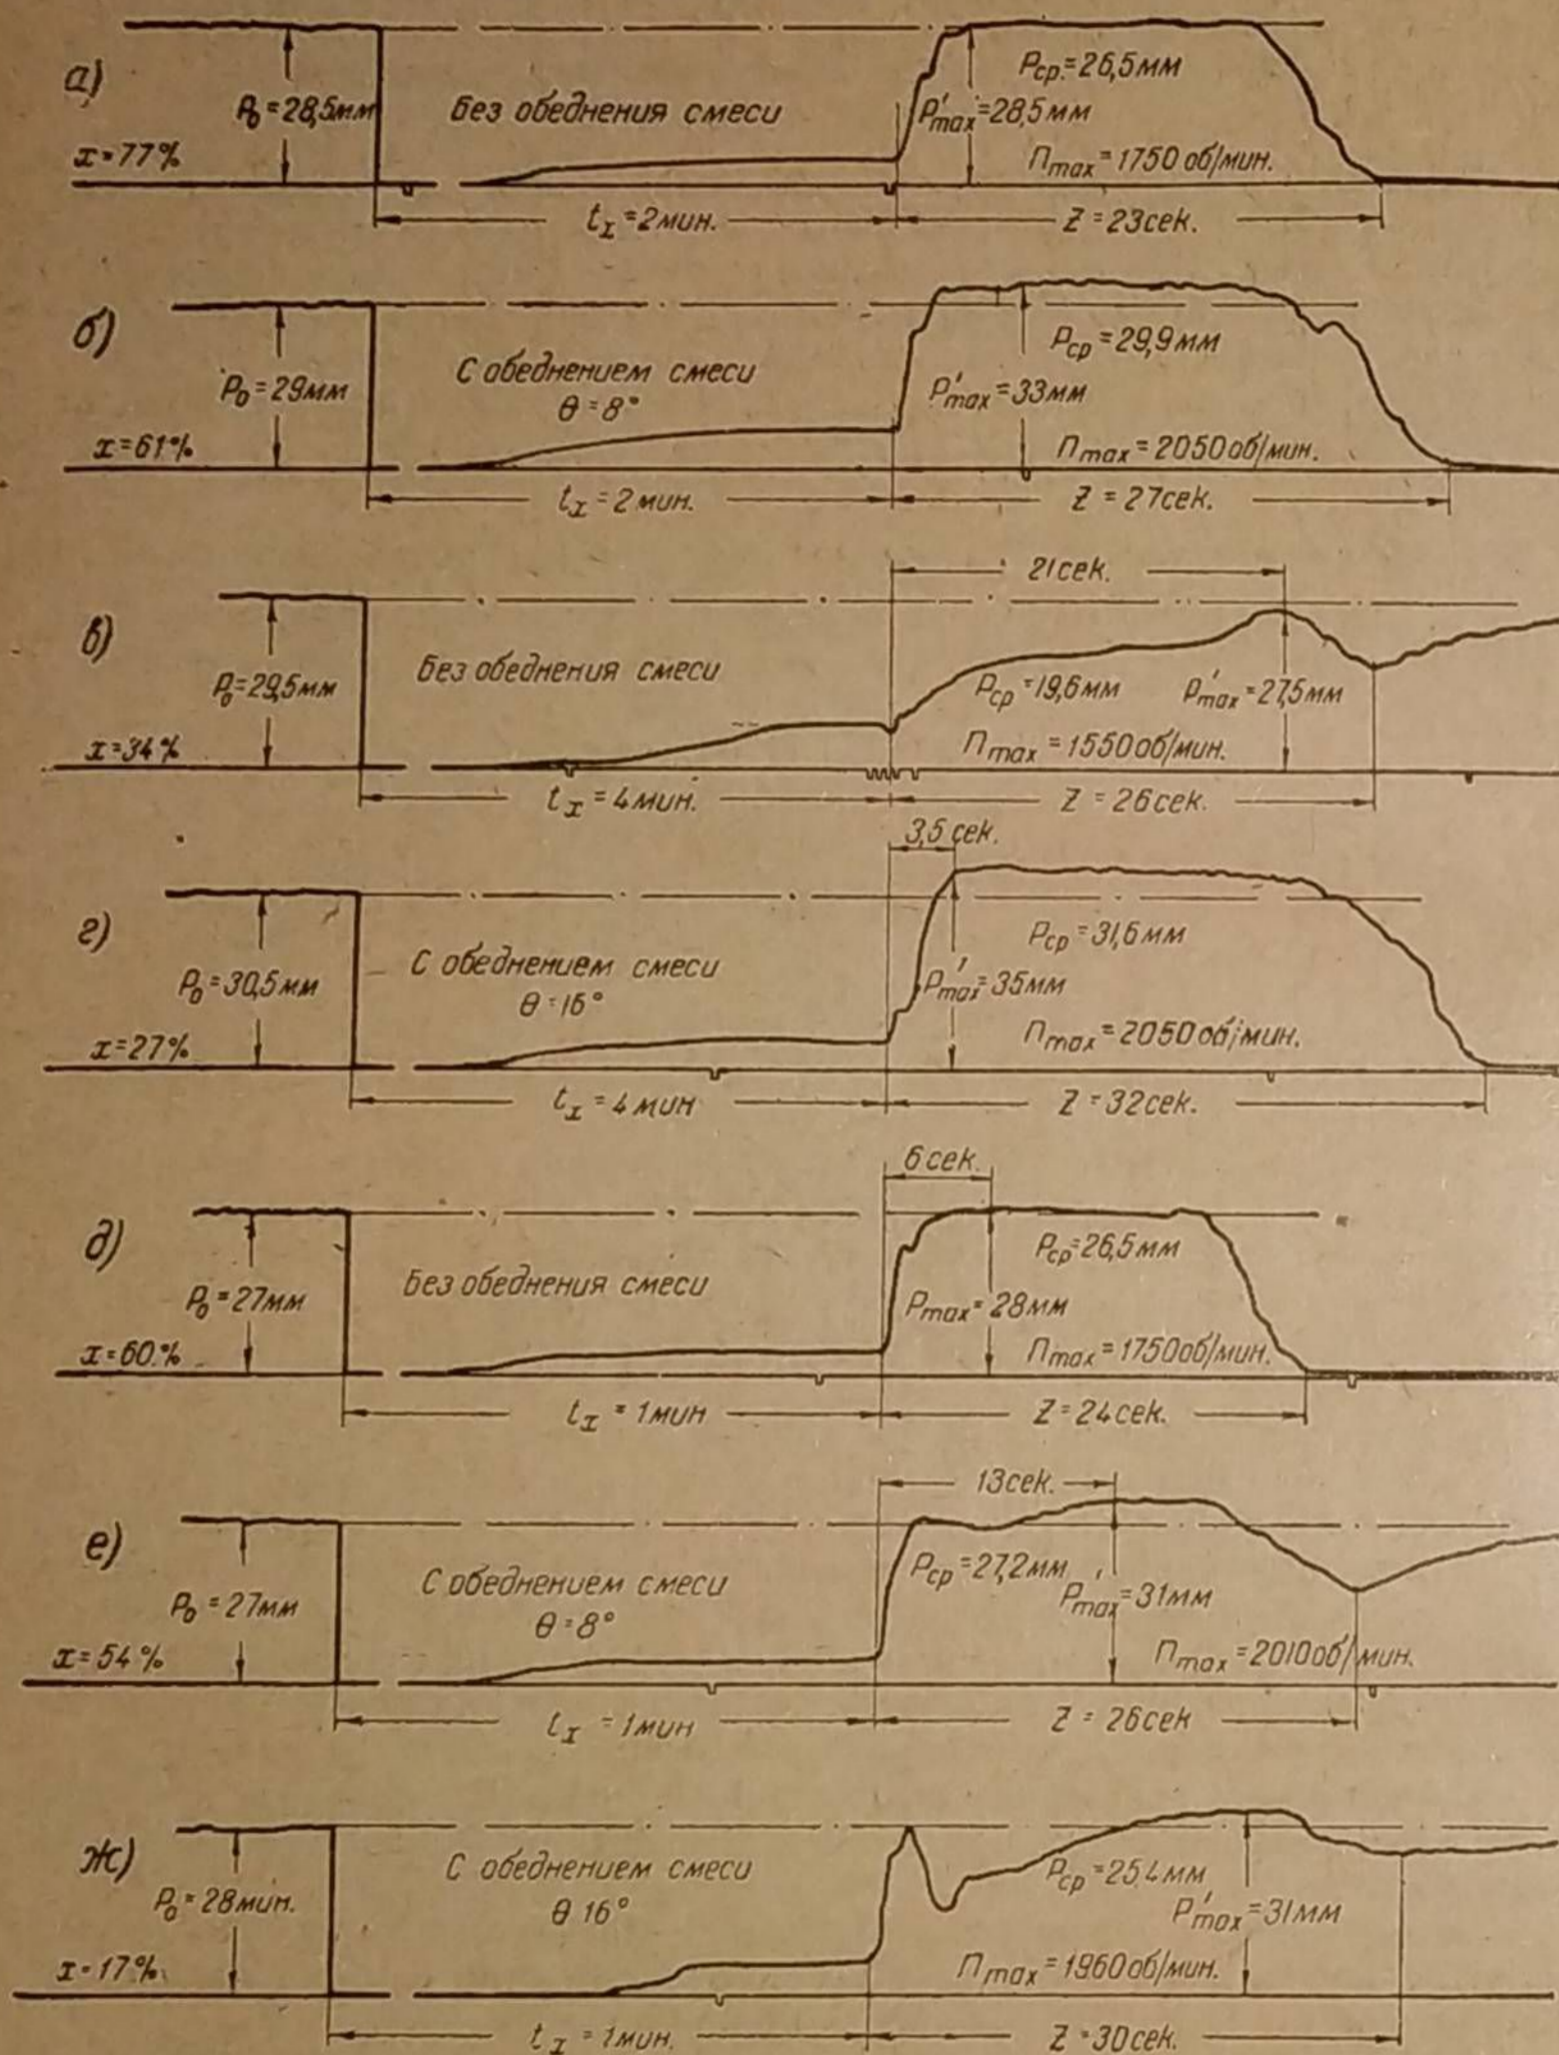 а)
P₀=28,5мм
Без обеднения смеси
Pср.=26,5мм
P'max=28,5мм
x=77%
nmax=1750 об/мин.
tx=2мин.
Z=23сек.
б)
P₀=29мм
С обеднением смеси
θ=8°
Pср=29,9мм
P'max=33мм
x=61%
nmax=2050об/мин.
tx=2мин.
Z=27сек.
21сек.
в)
P₀=29,5мм
Без обеднения смеси
Pср=19,6мм
P'max=27,5мм
x=34%
nmax=1550об/мин.
tx=4мин.
Z=26сек.
3,5 сек.
г)
P₀=30,5мм
С обеднением смеси
θ=16°
Pср=31,6мм
P'max=35мм
x=27%
nmax=2050об/мин.
tx=4мин
Z=32сек.
6сек.
д)
P₀=27мм
Без обеднения смеси
Pср=26,5мм
Pmax=28мм
x=60.%
nmax=1750об/мин.
tx=1мин
Z=24сек.
13сек.
е)
P₀=27мм
С обеднением смеси
θ=8°
Pср=27,2мм
P'max=31мм
x=54%
nmax=2010об/мин.
tx=1мин
Z=26сек
ж)
P₀=28мин.
С обеднением смеси
θ 16°
Pср=25,4мм
P'max=31мм
x-17%
nmax=1960об/мин.
tx=1мин.
Z=30сек.